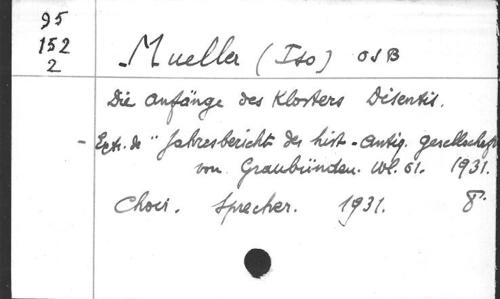 95
152
2
Mueller (Iso) OSB
Die anfänge des Klosters Disentis.
- Extr. de "Jahresbericht der hist-antiq. gesellschaft
von Graubünden. Vol. 61. 1931.
Choir. Sprecher. 1931. 8°.